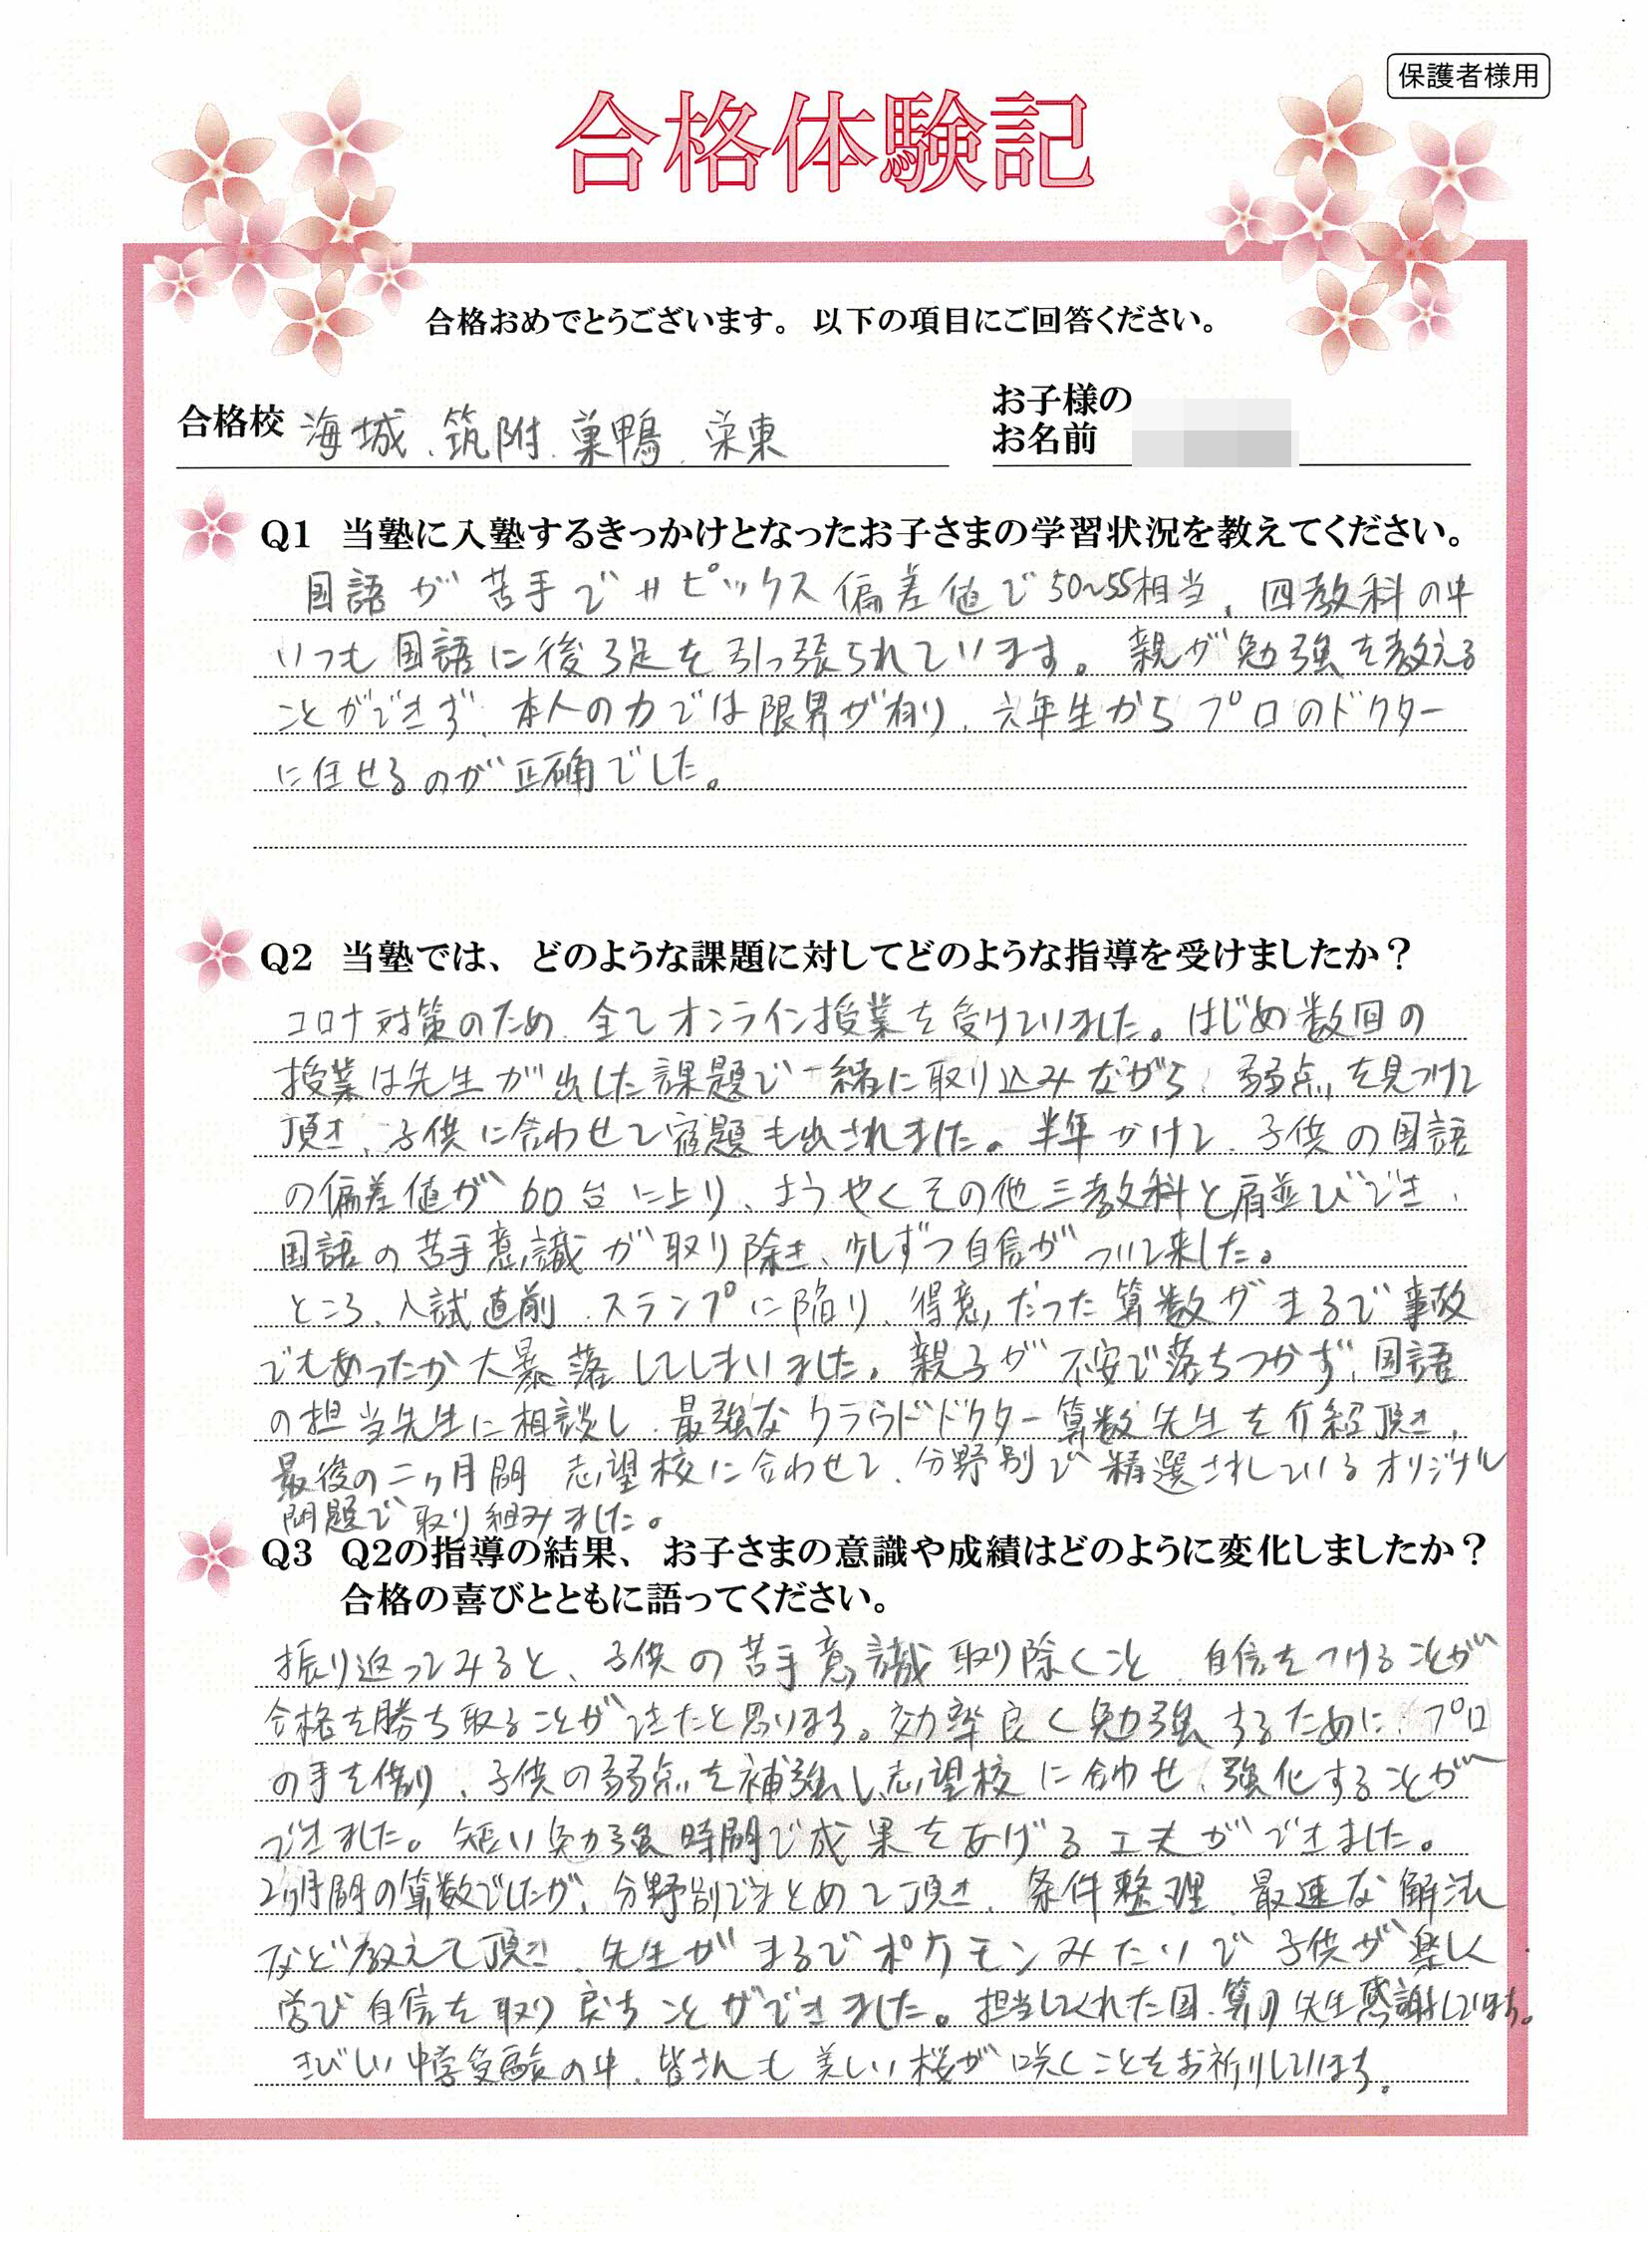 保護者様用
合格体験記
合格おめでとうございます。 以下の項目にご回答ください。
合格校 海城、筑附、巣鴨、栄東
お子様の
お名前
Q1 当塾に入塾するきっかけとなったお子さまの学習状況を教えてください。
国語が苦手でサピックス偏差値で50~55相当、四教科の中
いつも国語に後ろ足を引っ張られています。親が勉強を教える
ことができず、本人の力では限界が有り、六年生からプロのドクター
に任せるのが正確でした。
Q2 当塾では、どのような課題に対してどのような指導を受けましたか？
コロナ対策のため、全てオンライン授業を受けていました。はじめ数回の
授業は先生が出した課題で一緒に取り込みながら、弱点を見つけて
頂き、子供に合わせて宿題も出されました。半年かけて、子供の国語
の偏差値が60台に上り、ようやくその他三教科と肩並びでき、
国語の苦手意識が取り除き、少しずつ自信がついて来した。
ところ、入試直前、スランプに陥り、得意だった算数がまるで事故
でもあったか大暴落してしまいました。親子が不安で落ちつかず、国語
の担当先生に相談し、最強なクラウドドクター算数先生を介紹頂き、
最後の二ヶ月間 志望校に合わせて、分野別で精選されしているオリジナル
問題で取り組みました。
Q3 Q2の指導の結果、 お子さまの意識や成績はどのように変化しましたか？
合格の喜びとともに語ってください。
振り返ってみると、子供の苦手意識取り除くこと、自信をつけることが
合格を勝ち取ることができたと思います。効率良く勉強するために、プロ
の手を借り、子供の弱点を補強し、志望校に合わせ、強化することが
できました。短い勉強時間で成果をあげる工夫ができました。
2ヶ月間の算数でしたが、分野別でまとめて頂き、条件整理、最速な解法
など教えて頂き、先生がまるでポケモンみたいで子供が楽しく
学び自信を取り戻ちことができました。担当してくれた国、算の先生感謝しています。
きびしい中学受験の中、皆さんも美しい桜が咲くことをお祈りしています。